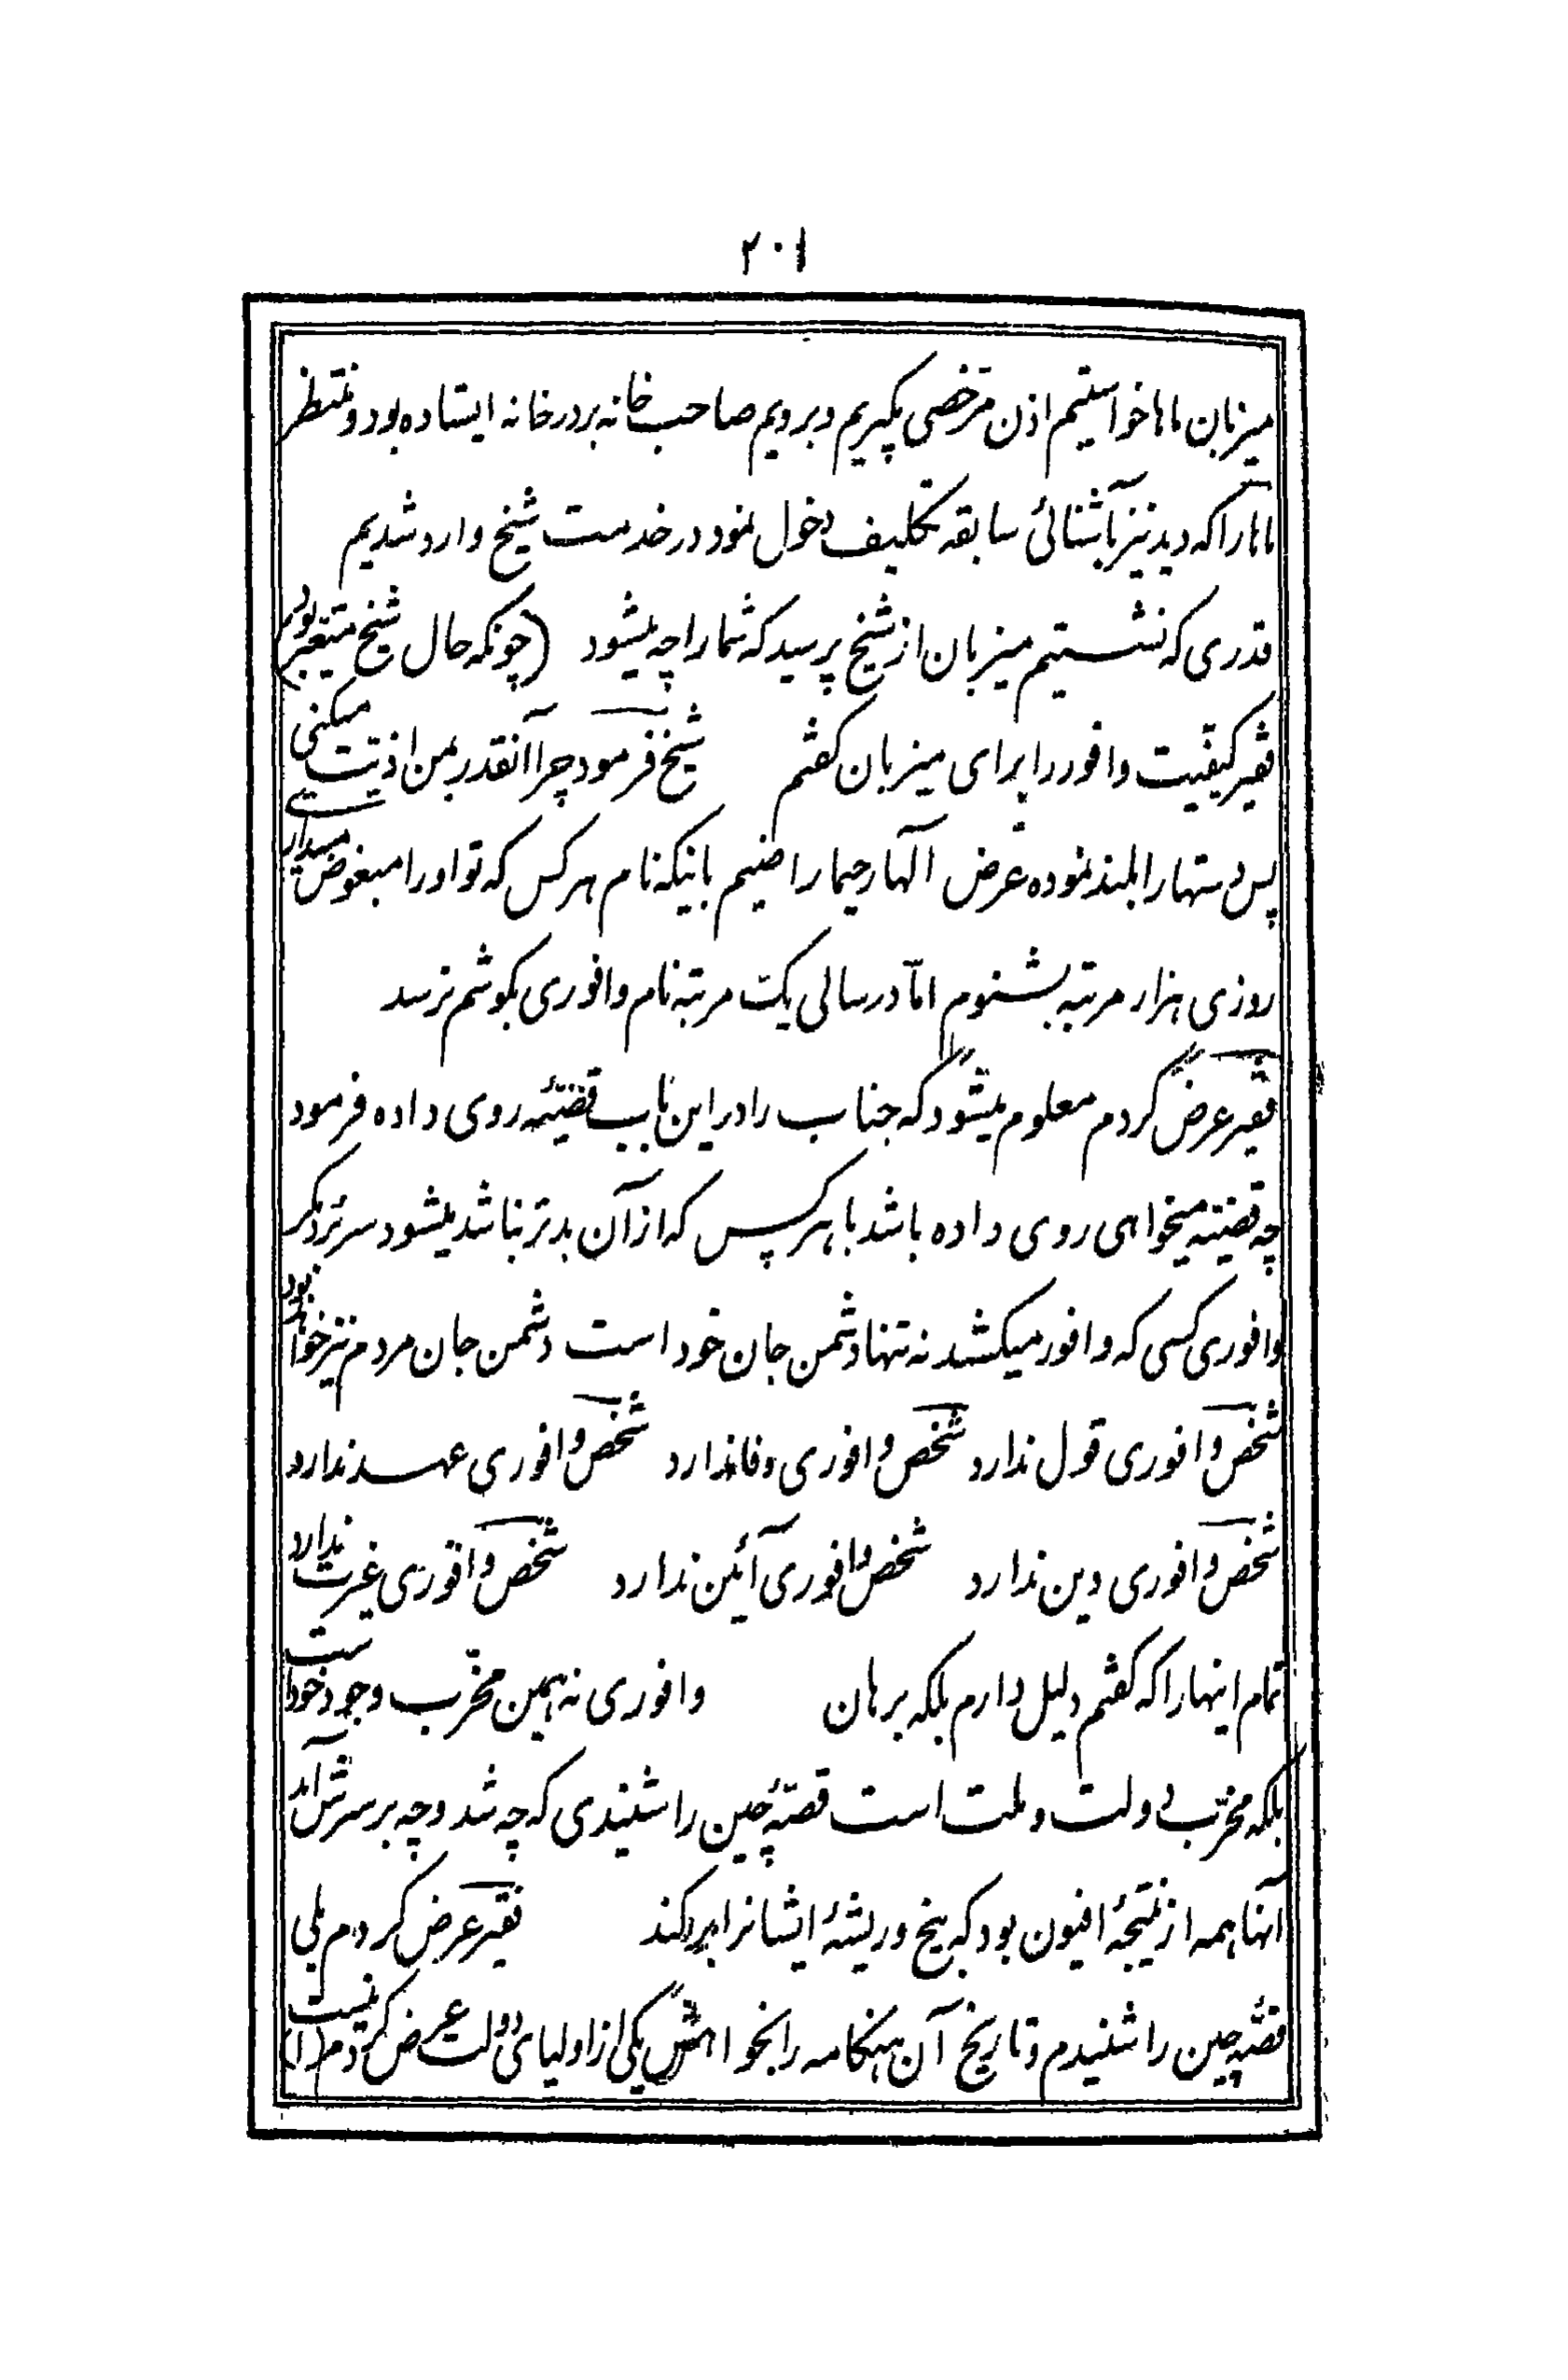 ۲۰۱
میزبان ماها خواستیم اذن مرخصی بگیریم و برویم صاحب خانه بر در خانه ایستاده بود و منتظر
ماها را که دید نیز بآشنائی سابقه تکلیف دخول نمود در خدمت شیخ وارد شدیم
قدری که نشستیم میزبان از شیخ پرسید که شما را چه میشود (چونکه حال شیخ متغیر بود)
فقیر کیفیت وافور را برای میزبان گفتم شیخ فرمود چرا آنقدر بمن اذیّت میکنی
پس دستها را بلند نموده عرض الها رحیما راضیم باینکه نام هر کس که تو او را مبغوض میداری
روزی هزار مرتبه بشنوم امّا در سالی یک مرتبه نام وافوری بگوشم نرسد
فقیر عرض کردم معلوم میشود که جناب را در این باب قضیّهٔ روی داده فرمود
چه قضیّه میخواهی روی داده باشد با هر کس که از آن بدتر نباشد میشود سر برد مگر
وافوری کسی که وافور میکشد نه تنها دشمن جان خود است دشمن جان مردم نیز خواهد بود
شخص وافوری قول ندارد شخص وافوری وفا ندارد شخص وافوری عهد ندارد
شخص وافوری دین ندارد شخص وافوری آئین ندارد شخص وافوری غیرت ندارد
تمام اینها را که گفتم دلیل دارم بلکه برهان وافوری نه همین مخرّب وجود خود است
بلکه مخرّب دولت و ملت است قصّهٔ چین را شنیدی که چه شد و چه بر سرش آمد
آنها همه از نتیجهٔ افیون بود که بیخ و ریشهٔ ایشانرا برکند فقیر عرض کردم بلی
قصّهٔ چین را شنیدم و تاریخ آن هنگامه را بخواهش یکی از اولیای دولت عرض کردم (۱)